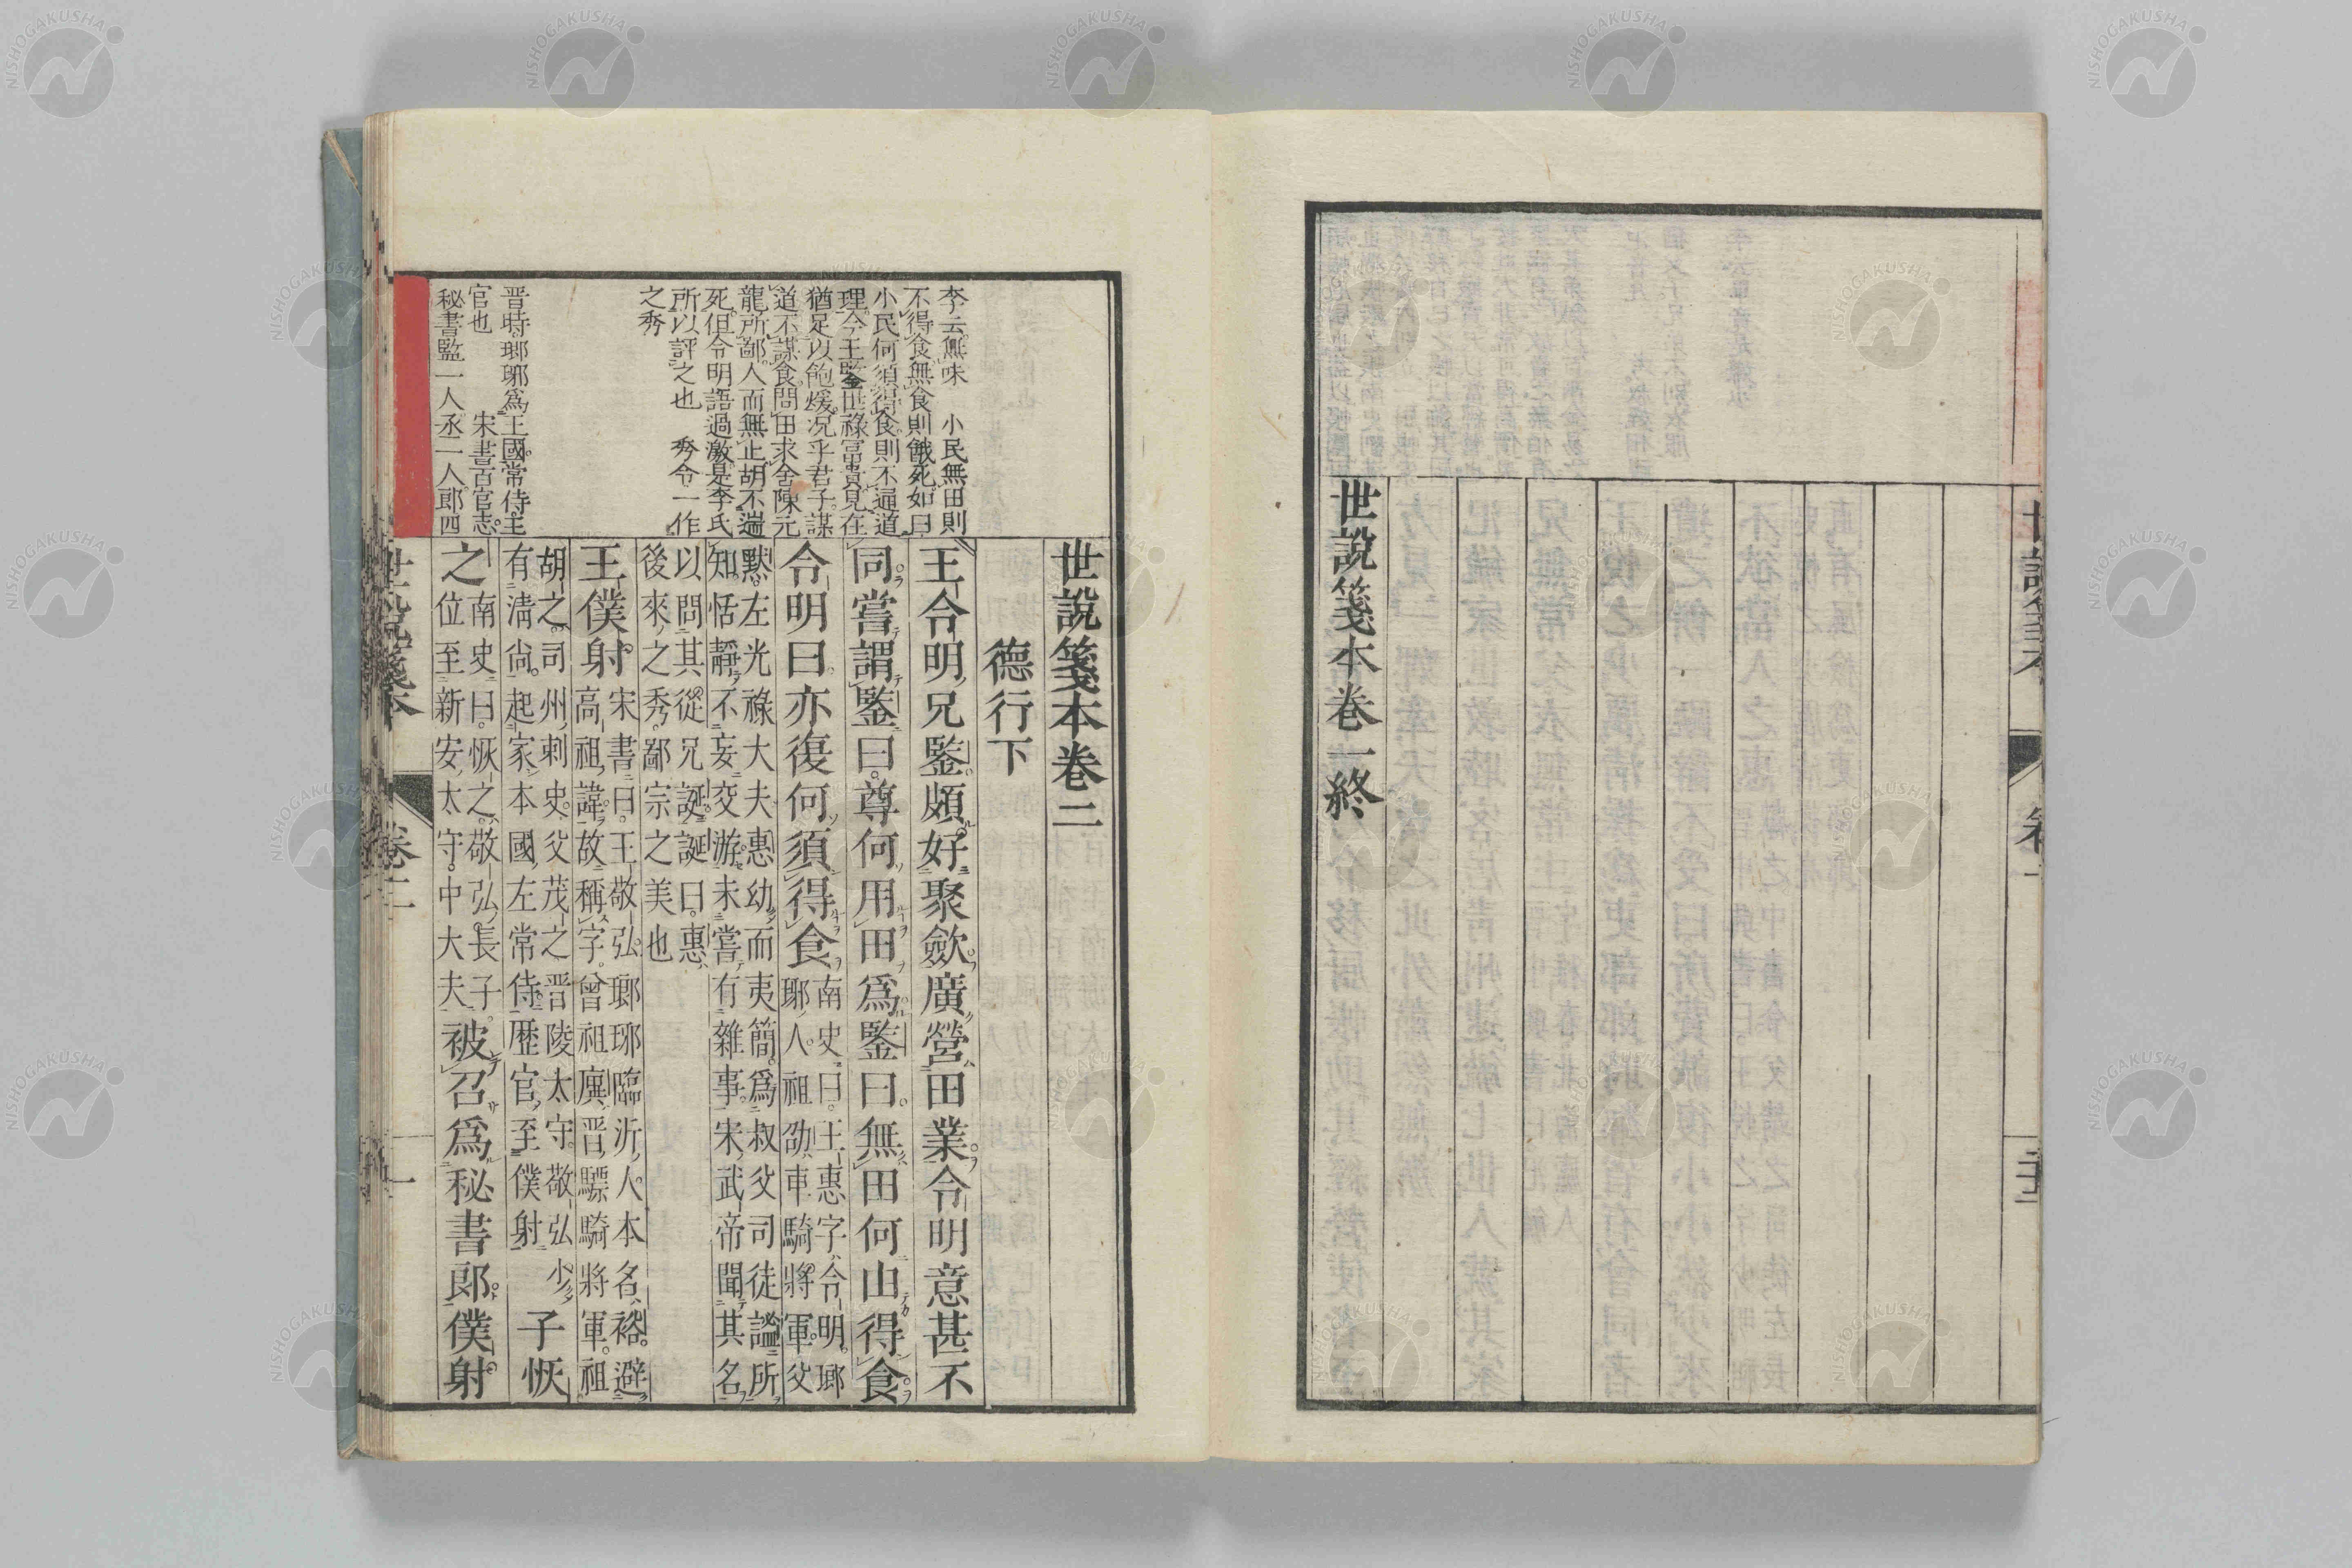 世說箋本卷一終
世說箋本卷二
德行下
李云無味　小民無田則
不得食無食則餓死如曰
小民何須得食則不通道
理今王鑒世祿富貴見在
猶足以飽煖況乎君子謀
道不謀食問田求舍陳元
龍所鄙人而無止胡不遄
死但令明語過激是李氏
所以評之也　秀令一作
之秀
晉時瑯琊爲王國常侍王
官也　宋書百官志
秘書監一人丞一人郎四
王令明兄鑒頗好聚歛廣營田業令明意甚不
同嘗謂鑒曰尊何用田爲鑒曰無田何由得食
令明曰亦復何須得食
南史曰王惠字令明瑯
琊人祖劭車騎將軍父
默左光祿大夫惠幼而夷簡爲叔父司徒謐所
知恬靜不妄交游未嘗有雜事宋武帝聞其名
以問其從兄誕誕曰惠
後來之秀鄙宗之美也
王僕射
宋書曰王敬弘瑯琊臨沂人本名裕避
高祖諱故稱字曾祖廙晉驃騎將軍祖
胡之司州刺史父茂之晉陵太守敬弘少
有清尚起家本國左常侍歷官至僕射
子恢
之
南史曰恢之敬弘長子
位至新安太守中大夫
被召爲秘書郎僕射
世說箋本
卷二
一